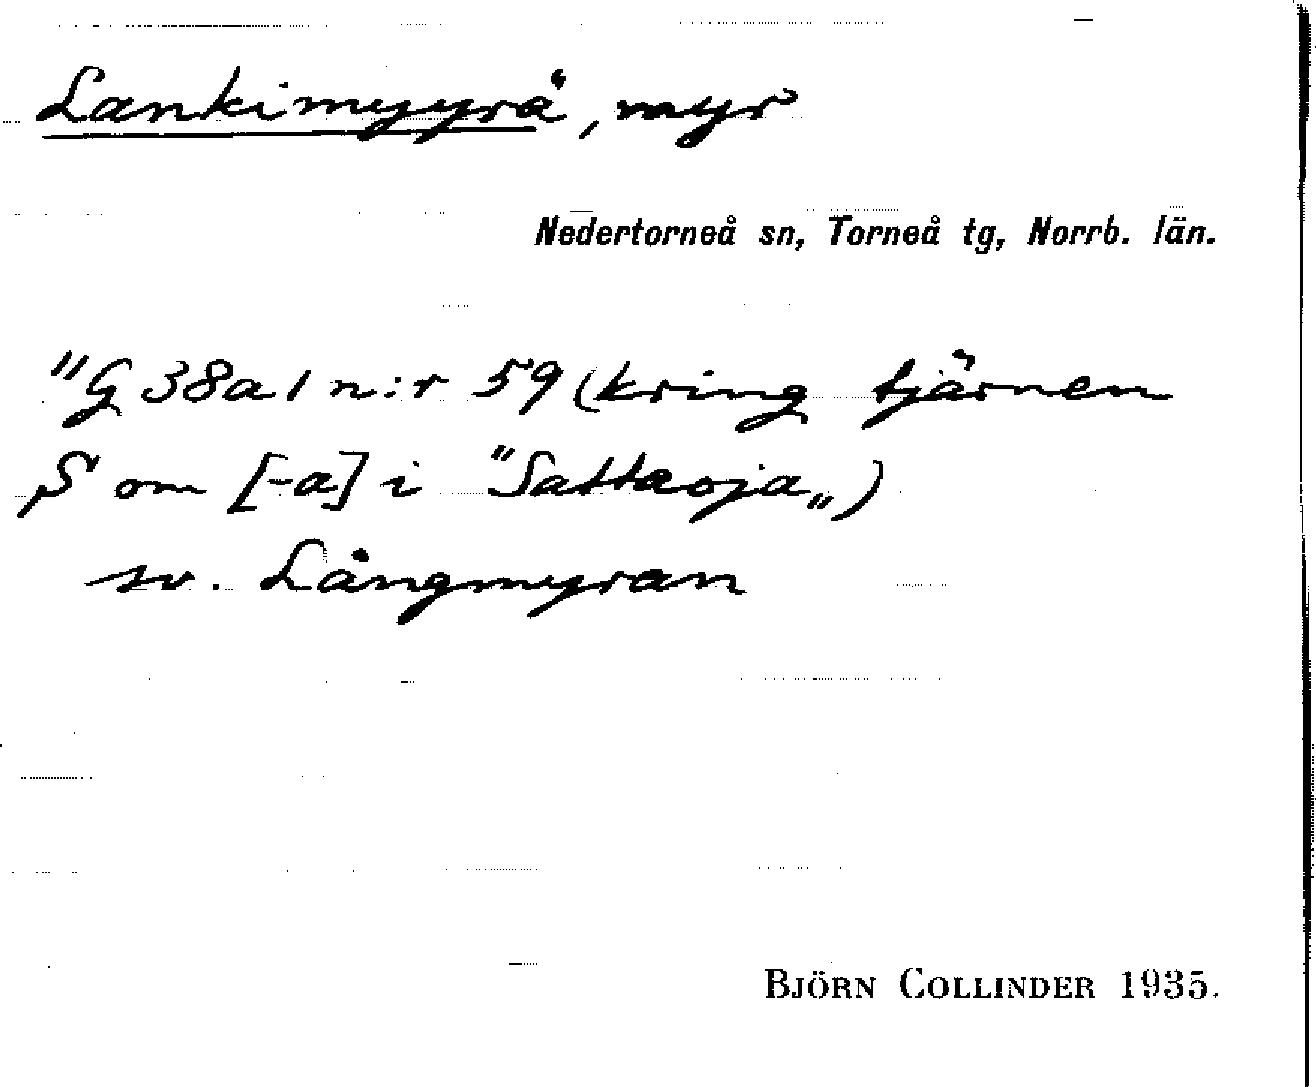 Lankimyyrä, myr
Nedertorneå sn, Torneå tg, Norrb. län.
"G 38a1 n:r 59 (kring tjärnen
S om [-a] i "Sattaoja„)
sv. Långmyran
BJÖRN COLLINDER 1935.